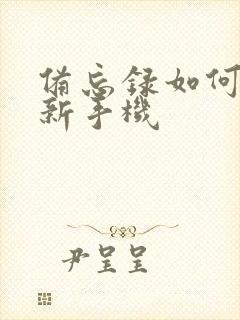 备忘录如何
新手機
尹呈呈